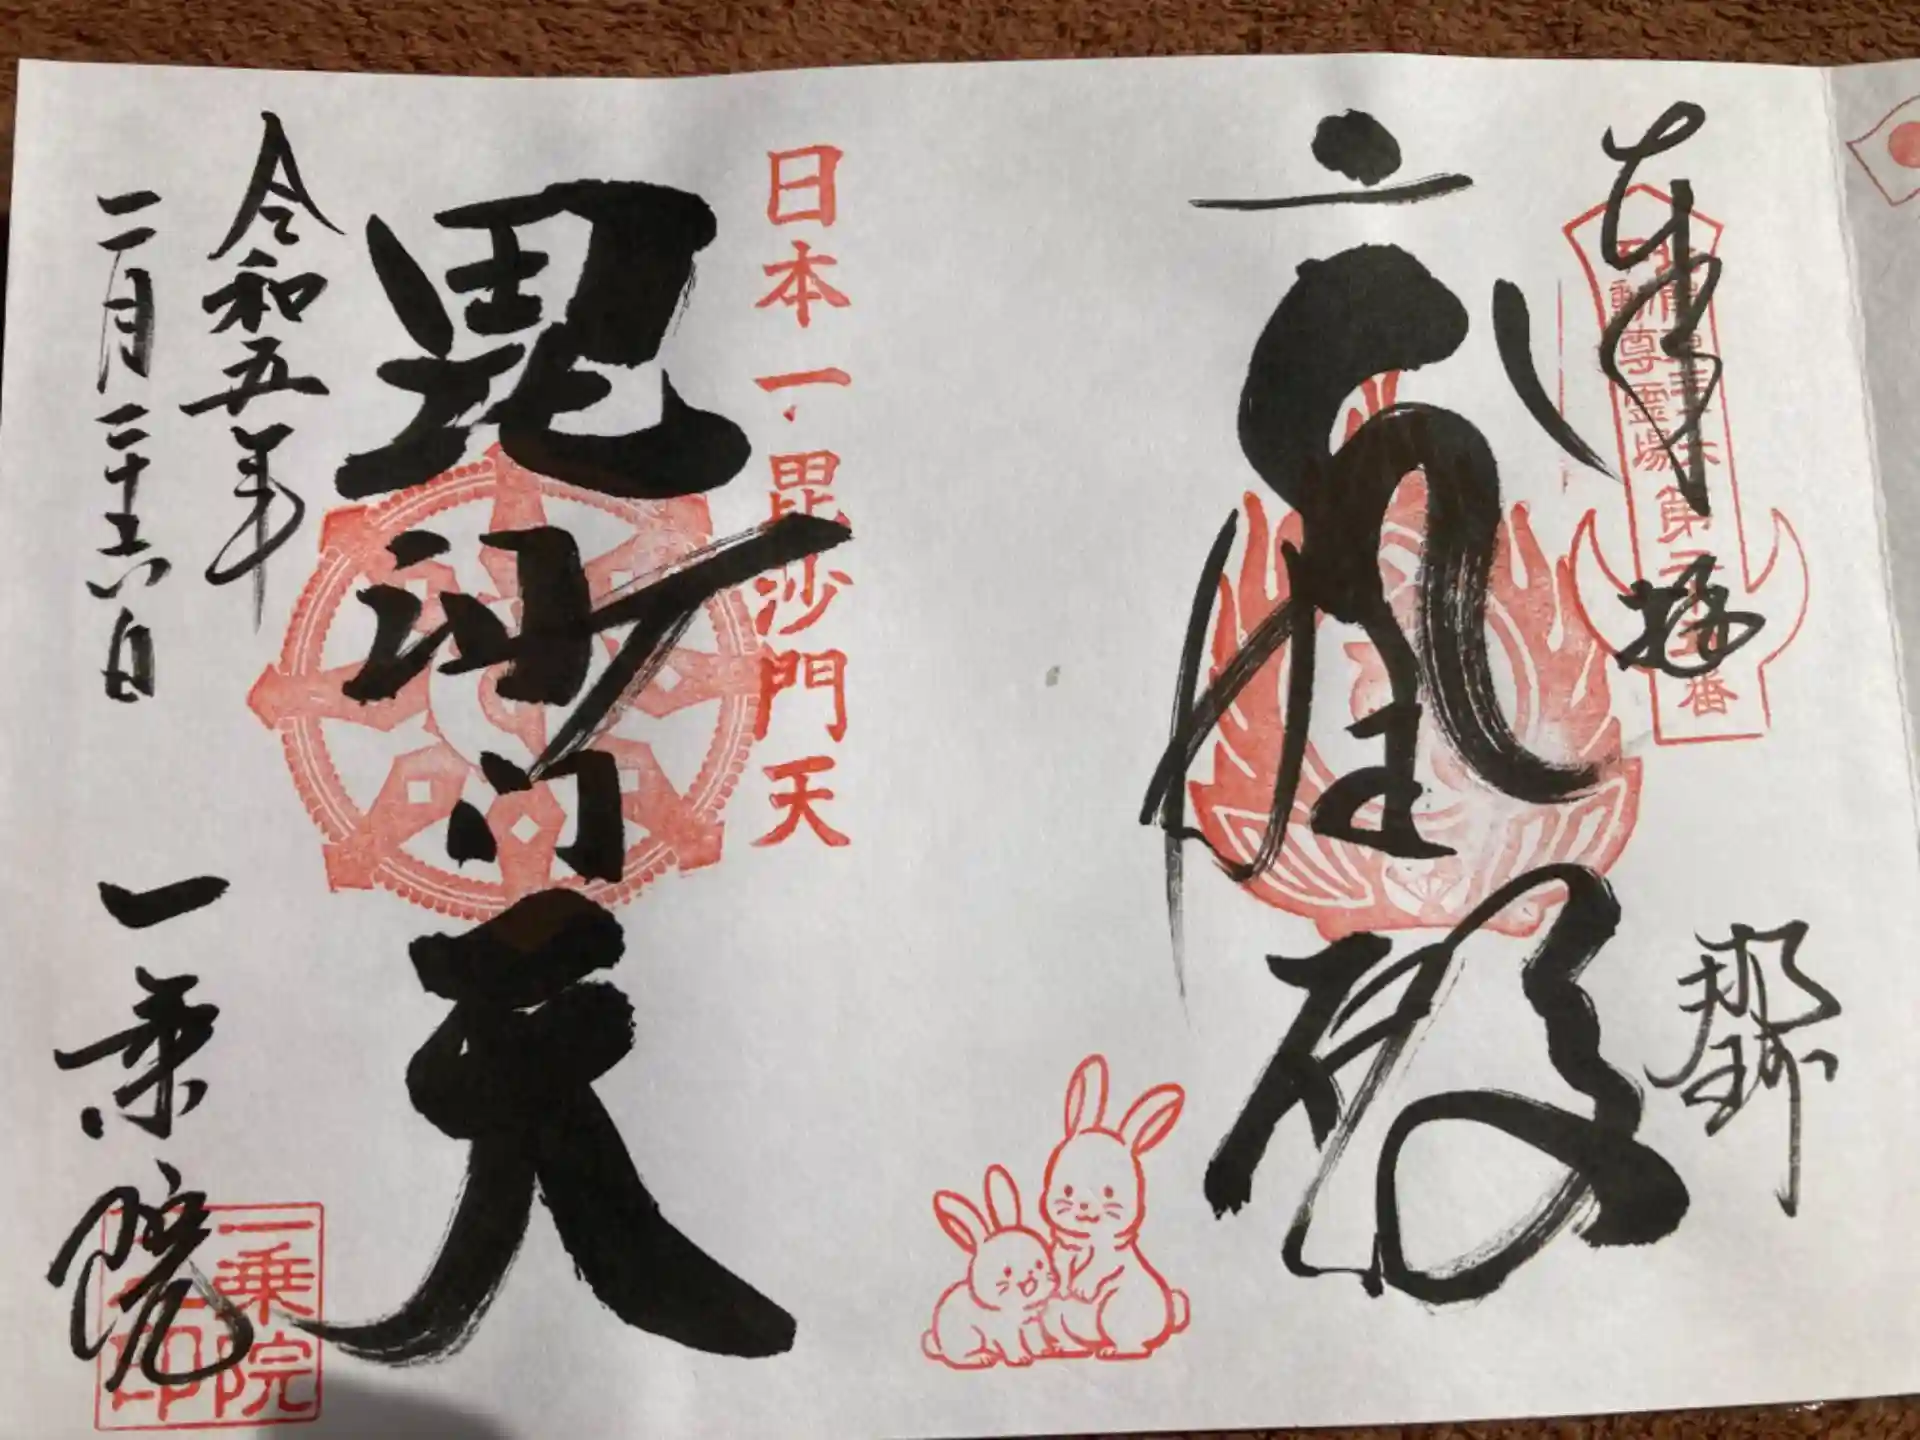 奉拝
動尊霊場
第
番
殿
那珂
日本一毘沙門天
毘沙門天
令和五年
二月二十六日
一乗院
一乗院
之印